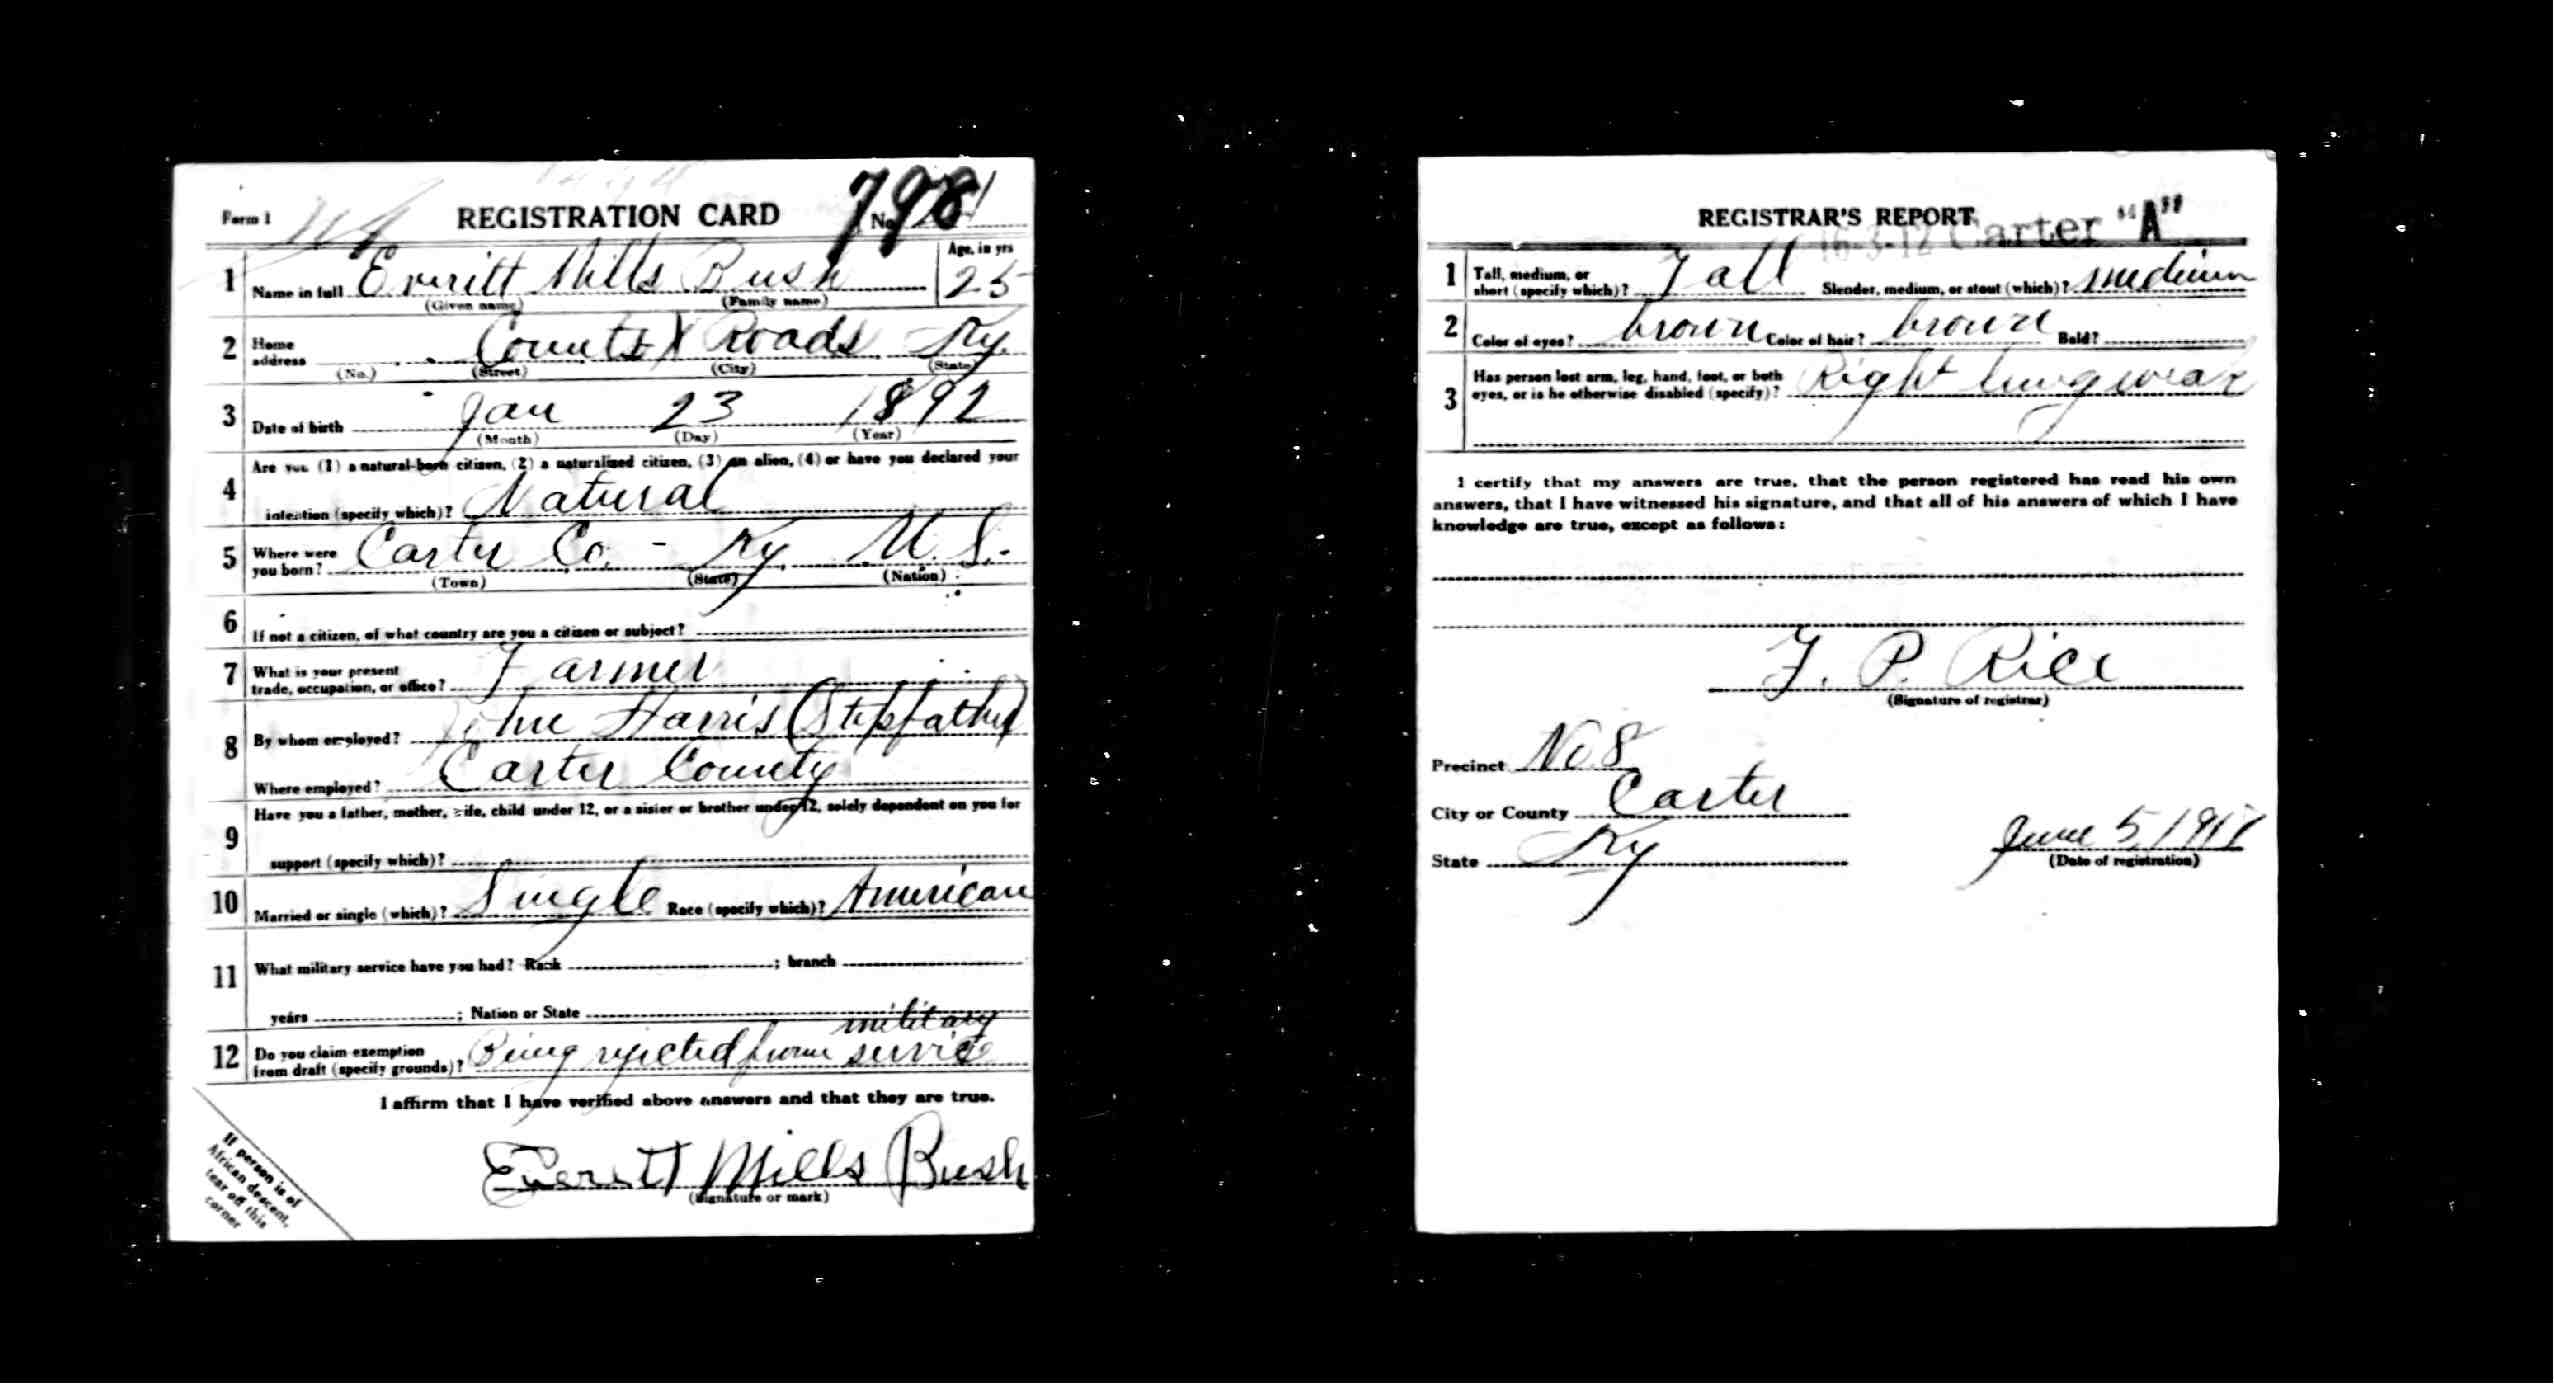 Form 1 REGISTRATION CARD No. 798
1 Name in full Everitt Mills Bush Age, in yrs 25
(Given name) (Family name)
2 Home address Counts X Roads Ky.
(No.) (Street) (City) (State)
3 Date of birth Jan 23 1892
(Month) (Day) (Year)
Are you (1) a natural-born citizen, (2) a naturalized citizen, (3) an alien, (4) or have you declared your
4 intention (specify which)? Natural
5 Where were you born? Carter Co. - Ky. U. S.-
(Town) (State) (Nation)
6 If not a citizen, of what country are you a citizen or subject?
7 What is your present trade, occupation, or office? Farmer
8 By whom employed? Harris (Stepfather)
Where employed? Carter County
Have you a father, mother, wife, child under 12, or a sister or brother under 12, solely dependent on you for
9 support (specify which)?
10 Married or single (which)? Single Race (specify which)? American
11 What military service have you had? Rank ; branch
years ; Nation or State
military
12 Do you claim exemption from draft (specify grounds)? Being rejected from service
I affirm that I have verified above answers and that they are true.
Everitt Mills Bush
(Signature or mark)
If person is of
African descent,
tear off this
corner
REGISTRAR'S REPORT
16-3-12 Carter "A"
1 Tall, medium, or short (specify which)? Tall Slender, medium, or stout (which)? medium
2 Color of eyes? brown Color of hair? brown Bald?
3 Has person lost arm, leg, hand, foot, or both eyes, or is he otherwise disabled (specify)? Right lung weak
I certify that my answers are true, that the person registered has read his own
answers, that I have witnessed his signature, and that all of his answers of which I have
knowledge are true, except as follows:
F. P. Rice
(Signature of registrar)
Precinct No 8
City or County Carter
State Ky
June 5, 1917
(Date of registration)